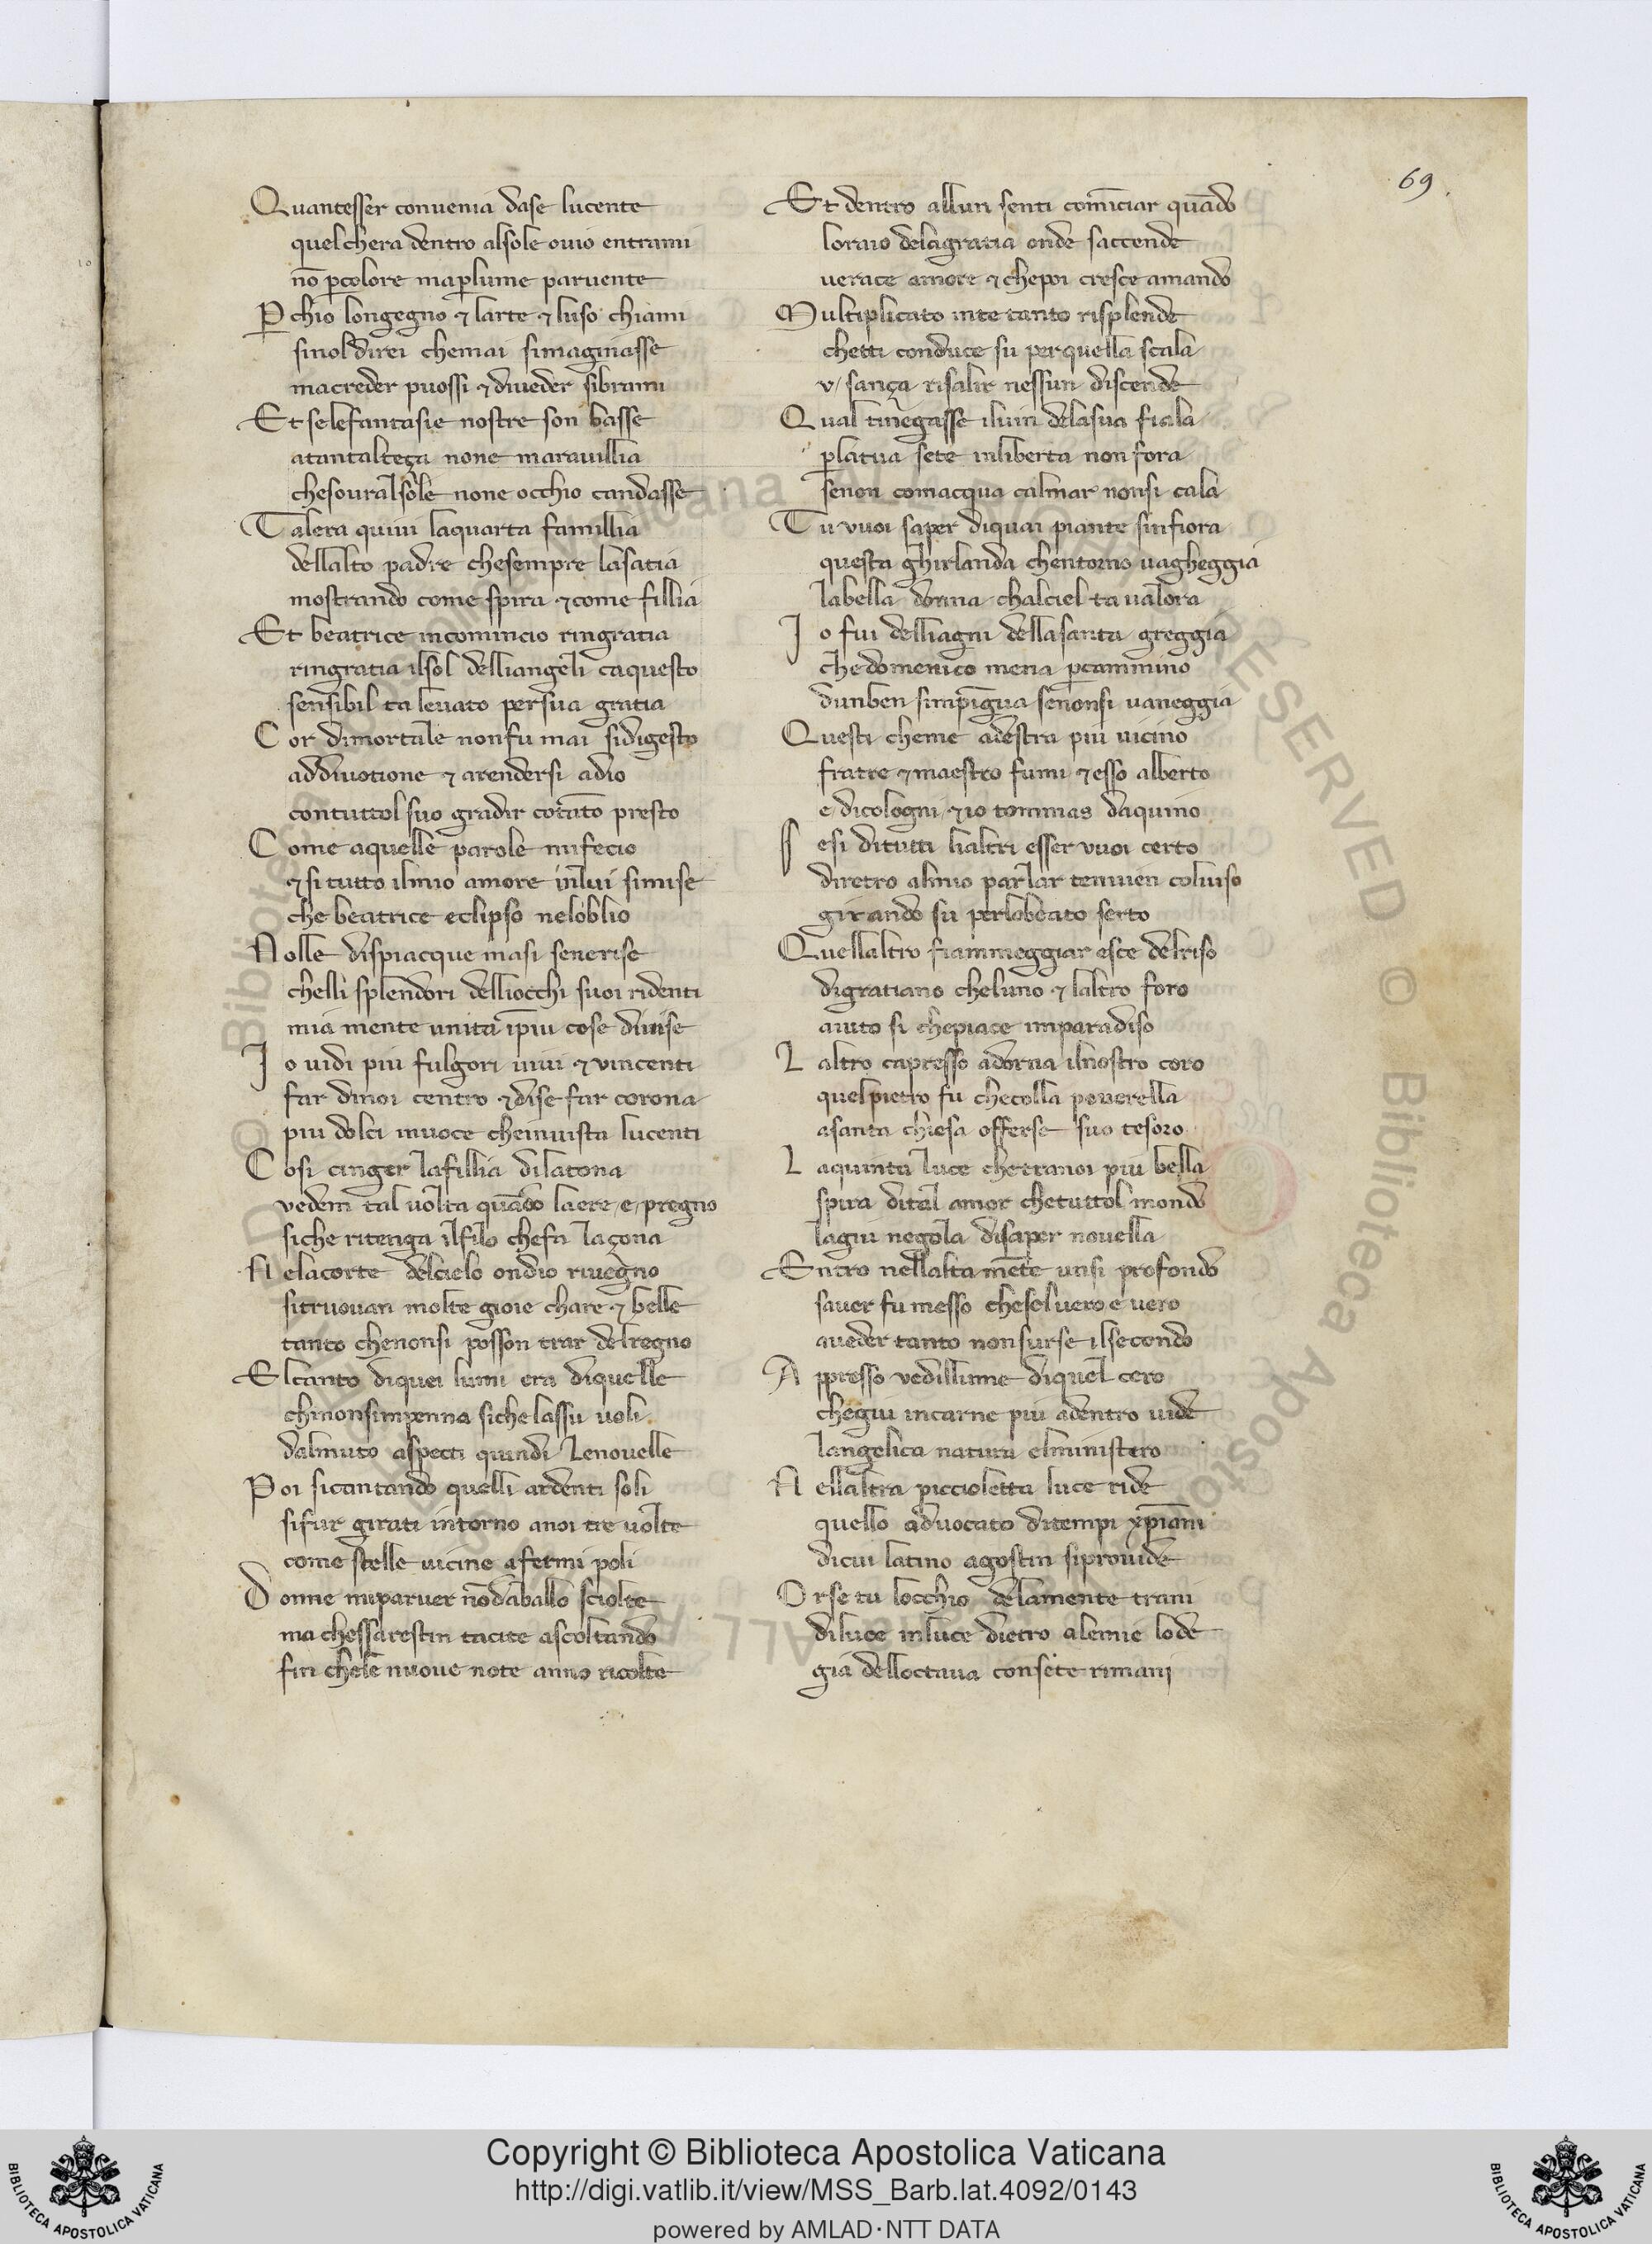 69.
Quantesser conuenia dase lucente
quelchera dentro alsole ouio entrami
nō ꝑcolore maꝑlume paruente
P̱chio longegno ⁊ larte ⁊ luso chiami
sinoldirei chemai simaginasse
macreder puossi ⁊ diueder sibrami
Et selefantasie nostre son basse
atantalteça none marauillia
chesouralsole none occhio candasse
Talera quiui laquarta famillia
dellalto padre chesempre lasatia
mostrando come spira ⁊ come fillia
Et beatrice incomincio ringratia
ringratia ilsol delliangeli caquesto
sensibil ta leuato persua gratia
Cor dimortale nonfu mai sidigesto
addiuotione ⁊ arendersi adio
contuttol suo gradir cotāto presto
Come aquelle parole mifecio
⁊ si tutto ilmio amore inlui simise
che beatrice eclipso neloblio
Nolle dispiacque masi senerise
chelli splendori delliocchi suoi ridenti
mia mente unita īpiu cose diuise
Io uidi piu fulgori uiui ⁊ vincenti
far dinoi centro ⁊ dise far corona
piu dolci inuoce cheinuista lucenti
Cosi cinger lafillia dilatona
vedem tal uolta quādo laere /e/ pregno
siche ritenga ilfilo chefa laçona
Nelacorte delcielo ondio riuegno
sitruouan molte gioie chare ⁊ belle
tanto chenonsi posson trar delregno
Elcanto diquei lumi era diquelle
chinonsimpenna siche lassu uoli
dalmuto aspecti quindi lenouelle
Poi sicantando quelli ardenti soli
sifur girati intorno anoi tre uolte
come stelle uicine afermi poli
Donne miparuer nōdaballo sciolte
ma chessarestin tacite ascoltando
fin chele nuoue note anno ricolte
Et dentro allun senti comīciar quādo
loraio delagratia onde saccende
uerace amore ⁊ chepoi cresce amando
Multiplicato inte tanto risplende
chetti conduce su perquella scala
v/ sança risalir nessun discende
Qual tinegasse iluin delasua fiala
ꝑlatua sete inliberta non fora
senon comacqua calmar nonsi cala
Tu vuoi saper diquai piante sinfiora
questa ghirlanda chentorno uagheggia
labella donna chalciel ta ualora
Io fui delliagni dellasanta greggia
chedomenico mena ꝑcammino
dunben simpīgua senonsi uaneggia
Questi cheme adestra piu uicino
fratre ⁊ maestro fumi ⁊ esso alberto
e/ dicologni ⁊ io tommas daquino
Sesi ditutti lialtri esser vuoi certo
diretro almio parlar tenuien coluiso
girando su perlobeato serto
Quellaltro fiammeggiar esce delriso
digratiano cheluno ⁊ laltro foro
aiuto si chepiace imparadiso
Laltro capresso adorna ilnostro coro
quelpietro fu checolla pouerella
asanta chiesa offerse suo tesoro
Laquinta luce chettranoi piu bella
spira dital amor chetuttol mondo
lagiu negola disaper nouella
Entro nellalta mēte unsi profondo
sauer fu messo cheseluero e uero
aueder tanto nonsurse ilsecondo
Appresso vedillume diquel cero
chegiu incarne piu adentro uide
langelica natura elministero
Nellaltra piccioletta luce ride
quello aduocato ditempi xp̄iani
dicui latino agostin siprouide
Orse tu locchio delamente trani
diluce inluce dietro alemie lode
gia delloctaua consete rimani
© Biblioteca Apostolica Vaticana
ALL RIGHTS RESERVED
Copyright © Biblioteca Apostolica Vaticana
http://digi.vatlib.it/view/MSS_Barb.lat.4092/0143
powered by AMLAD·NTT DATA
BIBLIOTECA APOSTOLICA VATICANA
BIBLIOTECA APOSTOLICA VATICANA